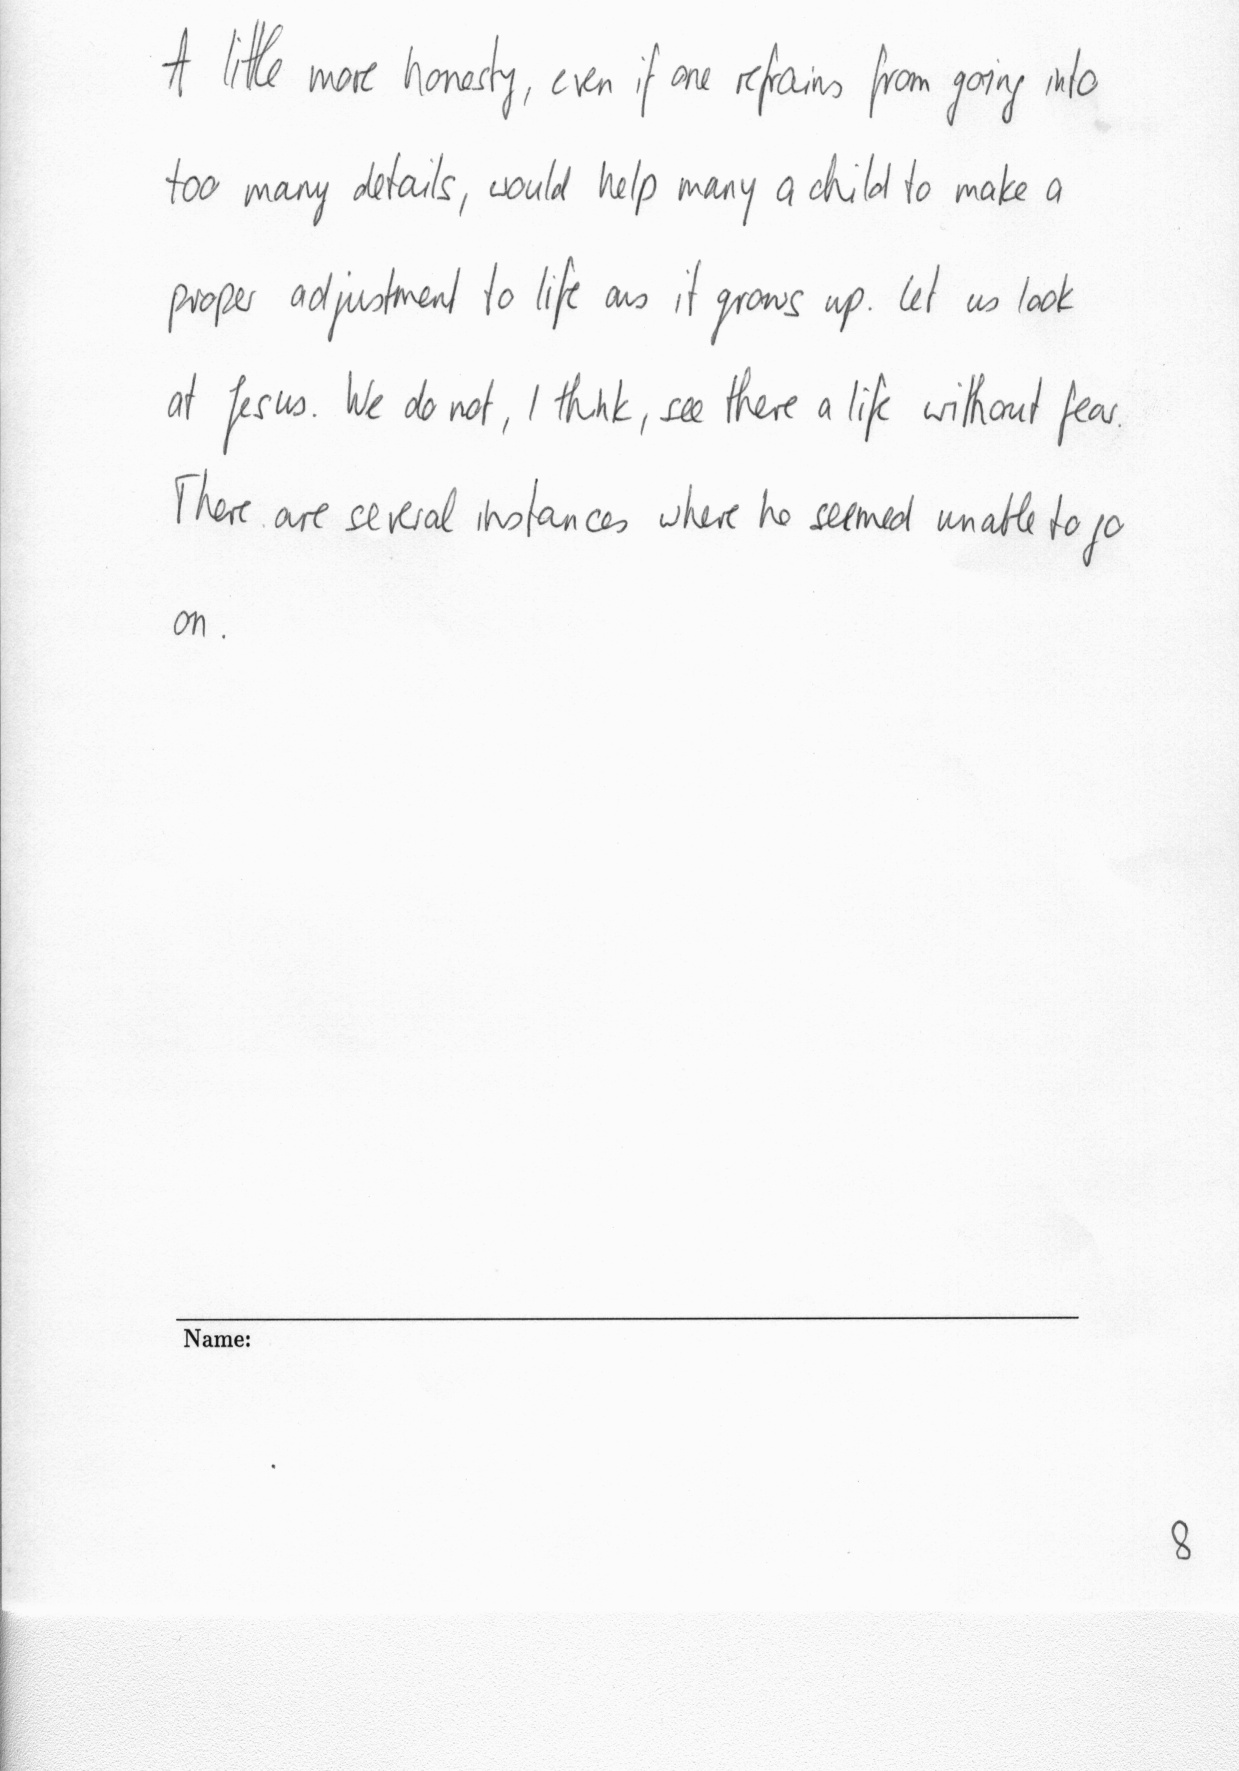 A little more honesty, even if one refrains from going into
too many details, would help many a child to make a
proper adjustment to life as it grows up. Let us look
at Jesus. We do not, I think, see there a life without fear.
There are several instances where he seemed unable to go
on.
Name:
8